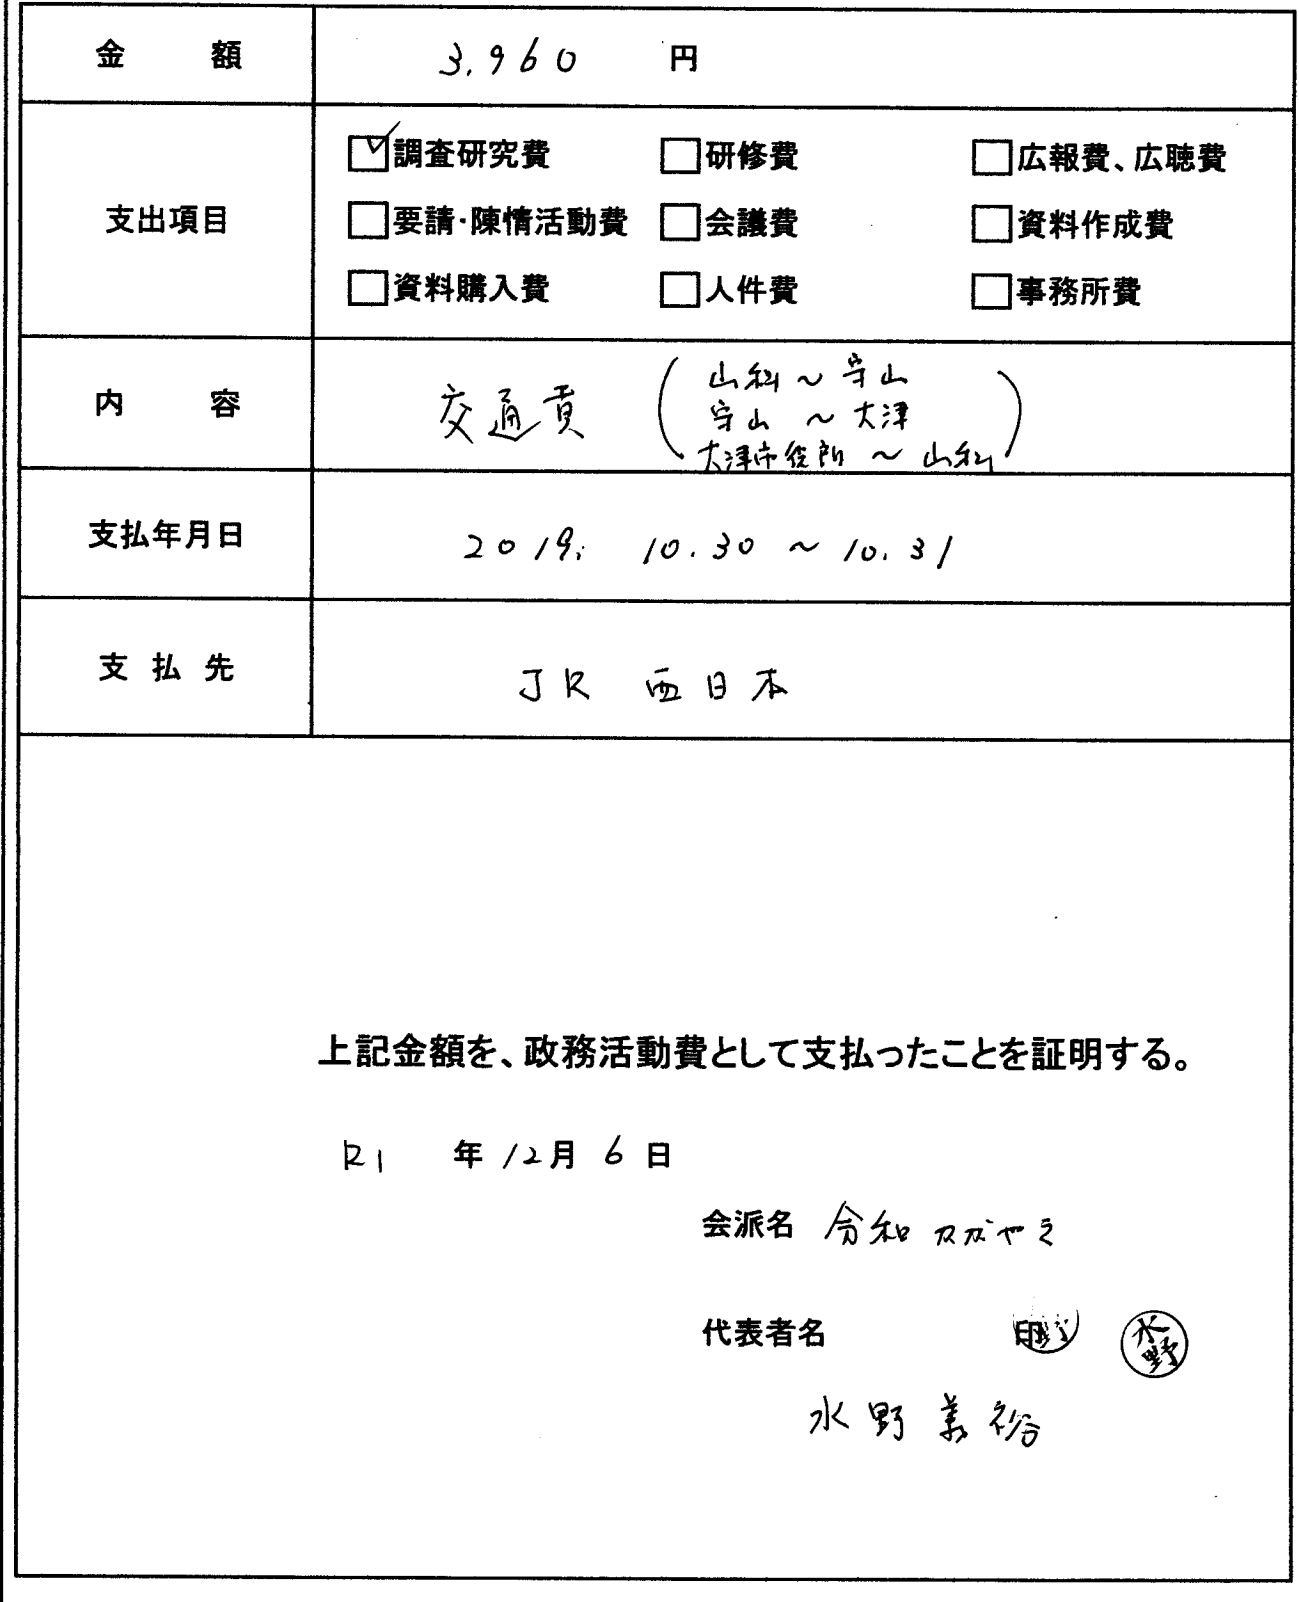 金額 3,960 円
支出項目
☑調査研究費 □研修費 □広報費、広聴費
□要請・陳情活動費 □会議費 □資料作成費
□資料購入費 □人件費 □事務所費
内容 交通費
山科～守山
守山～大津
大津市役所～山科
支払年月日 2019. 10.30～10.31
支払先 JR 西日本
上記金額を、政務活動費として支払ったことを証明する。
R1 年 12月 6日
会派名 令和かがやき
代表者名 印 水野
水野美裕